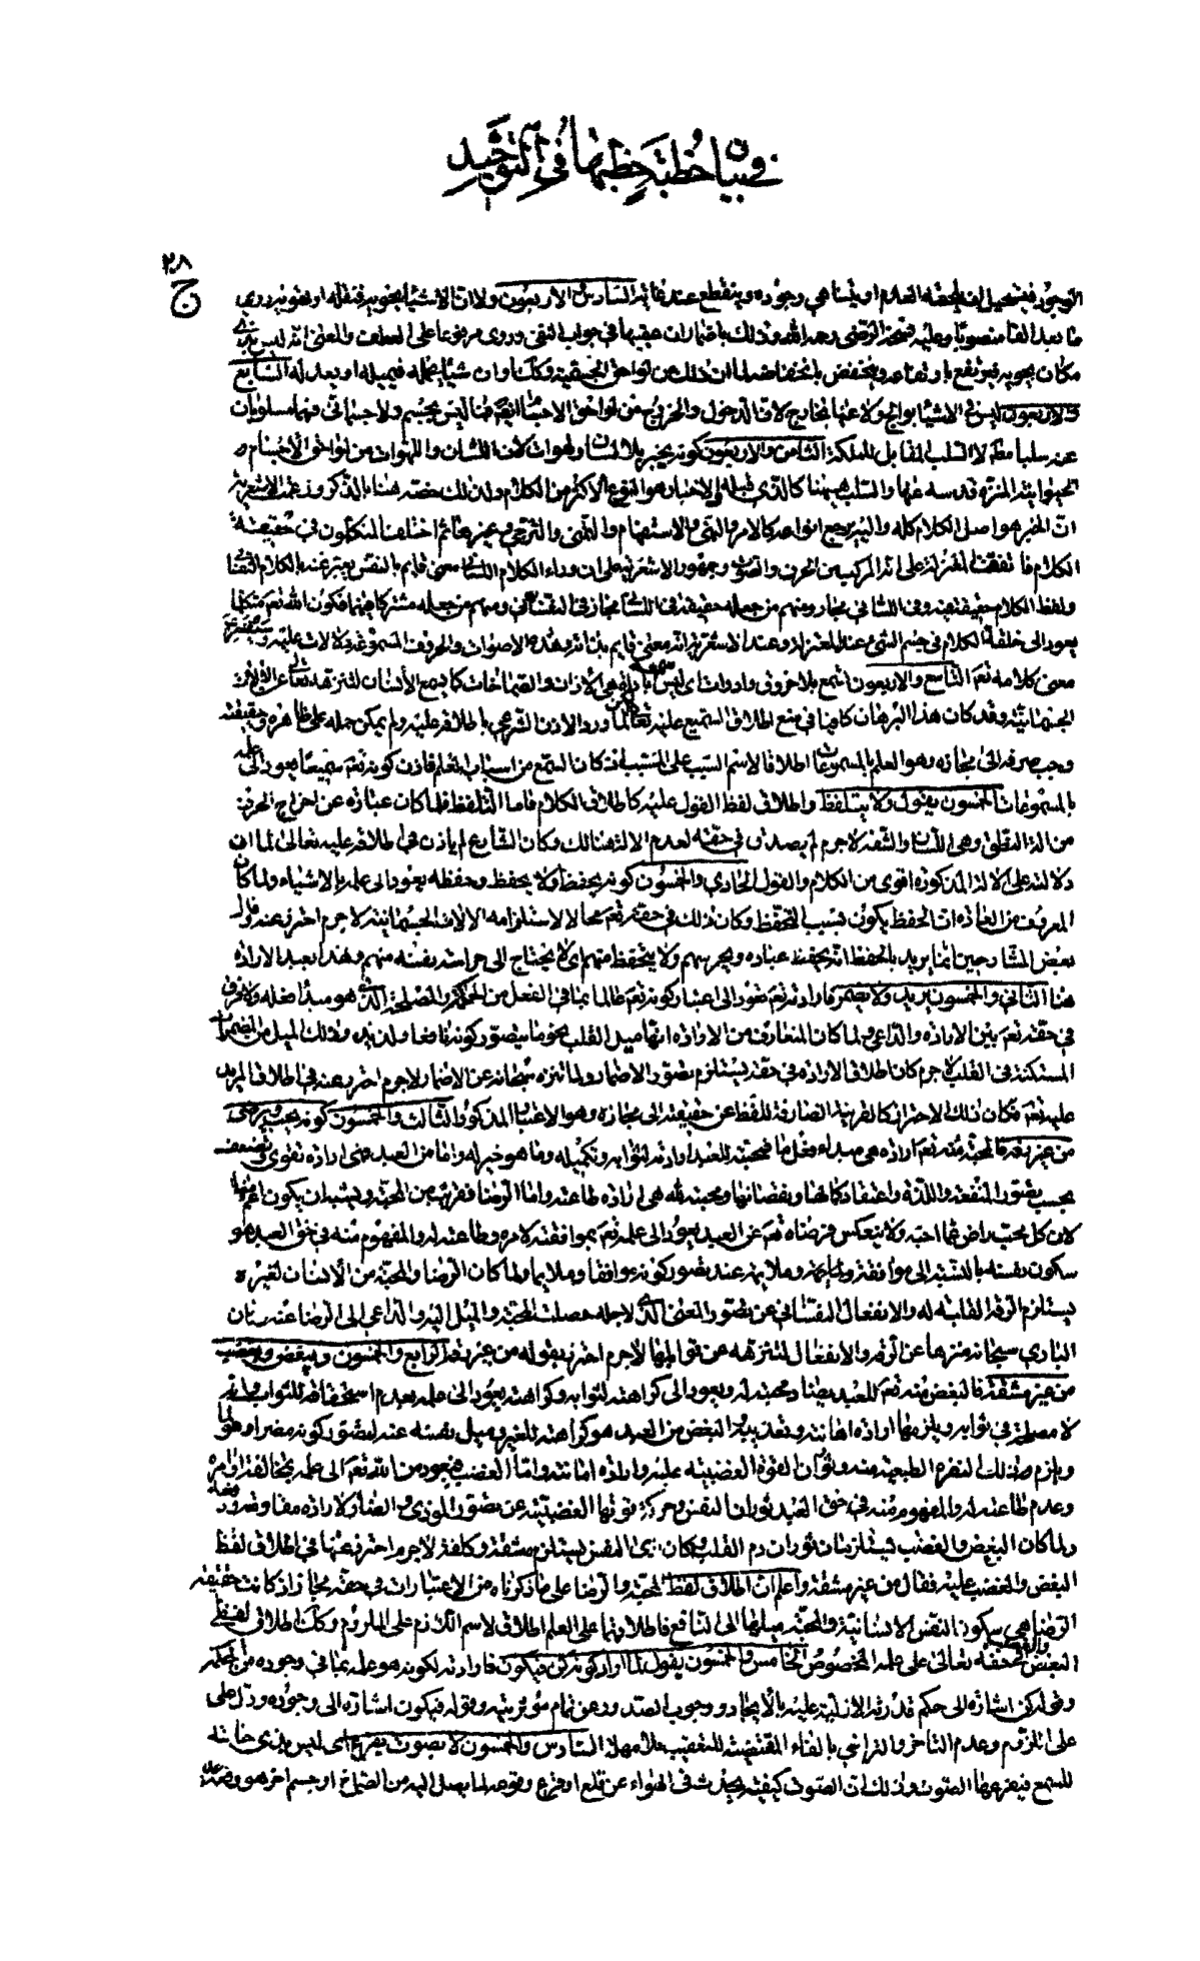 في بيان خطبة خطبها في التوحيد
٢٠٨
ج
الوجود فيستحيل ان يلحقه العدم او يتناهي وجوده وينقطع عند غاية السادس والاربعون ولا ان الاشياء تحويه فتقله او تهويه روي
ما بعد الفا منصوبا وعليه نسخة الرضي رحمه الله وذلك باضمار ان عقيبها في جواب النفي وروي مرفوعا على العطف والمعنى انه ليس بذي
مكان يحويه فيرتفع بارتفاعه وينخفض بانخفاضه لما ان ذلك من لواحق الجسمية وكذا ولا ان شيئا يحمله فيميله او يعدله السابع
والاربعون ليس في الاشياء بوالج ولا عنها بخارج لان الدخول والخروج من لواحق الاجسام ايضا فما ليس بجسم ولا جسماني فهما مسلوبان
عنه سلبا مطلقا لا السلب المقابل للملكة الثامن والاربعون كونه يخبر بلا لسان ولهوات لان اللسان واللهوات من لواحق الاجسام
الحيوانية المنزه قدسه عنها والسلب هيهنا كالذي قبله والاخبار هو النوع الاكثر من الكلام ولذلك خصه هنا بالذكر وزعمت الاشعرية
ان الخبر هو اصل الكلام كله واليه يرجع انواعه كالامر والنهي والاستفهام والتمني والترجي وغيرها ثم اختلف المتكلمون في حقيقة
الكلام فاتفقت المعتزلة على انه المركب من الحرف والصوت وجمهور الاشعرية على ان وراء الكلام اللساني معنى قايم بالنفس يعبر عنه بالكلام النفساني
ولفظ الكلام حقيقة فيه وفي اللساني مجاز ومنهم من جعله حقيقة في اللساني مجاز في النفساني ومنهم من جعله مشتركا بينهما فكون الله تعم متكلما
يعود الى خلقه الكلام في جسم النبي عند المعتزلة وعند الاشعرية انه معنى قايم بذاته وهذه الاصوات والحروف المسموعة دلالات عليه
معنى كلامه تعم التاسع والاربعون يسمع بلا خروق وادوات اي ليس بالة هي الاذان والصماخات كما يسمع الانسان لتنزهه تعالى عن الالات
الجسمانية وقد كان هذا البرهان كافيا في منع اطلاق السميع عليه تعالى لكن لما ورد الاذن الشرعي باطلاقه عليه ولم يمكن حمله على ظاهره وحقيقته
وجب صرفه الى مجازه وهو العلم بالمسموعات اطلاقا لاسم السبب على المسبب اذ كان السمع من اسباب العلم فاذن كونه تعم سميعا يعود الى علمه
بالمسموعات الخمسون يقول ولا يتلفظ واطلاق لفظ القول عليه كاطلاق الكلام فاما التلفظ فلما كان عبارة عن اخراج الحرف
من الة النطق وهي اللسان والشفة لا جرم لم يصدق في حقه لعدم الالة هنالك وكان الشارع لم ياذن في اطلاقه عليه تعالى لما ان
دلالته على الالة المذكورة اقوى من الكلام والقول الحادي والخمسون كونه يحفظ ولا يتحفظ وحفظه يعود الى علمه بالاشياء ولما كان
المعروف من العادة ان الحفظ يكون بسبب التحفظ وكان ذلك في حقه تعم محالا لاستلزامه الالات الجسمانية لا جرم احترز عنه وقال
بعض الشارحين انما يريد بالحفظ انه يحفظ عباده ويحرسهم ولا يتحفظ منهم اي لا يحتاج الى حراسة نفسه منهم وهذا بعيد الارادة
هنا الثاني والخمسون يريد ولا يضمر فارادته تعم تعود الى اعتبار كونه تعم عالما بما في الفعل من الحكمة والمصلحة الذي هو مبدأ فعله ولا فرق
في حقه تعم بين الارادة والداعي ولما كان المتعارف من الارادة انها ميل القلب نحو ما يتصور كونه نافعا ولذيذا وذلك الميل من المضمرات
المستكنة في القلب لا جرم كان اطلاق الارادة في حقه يستلزم تصور الاضمار ولما تنزه سبحانه عن الاضمار لا جرم احترز عنه في اطلاق المريد
عليه تعم فكان ذلك الاحتراز كالقرينة الصارفة للفظ عن حقيقته الى مجازه وهو الاعتبار المذكور الثالث والخمسون كونه يحب ويرضى
من غير رقة فالمحبة منه تعم ارادة هي مبدء فعل ما فمحبته للعبد ارادته لثوابه وتكميله وما هو خير له واما من العبد فهي ارادة تقوى وتضعف
بحسب تصور المنفعة واللذة واعتقاد كمالها ونقصانها ومحبته لله هي ارادة طاعته واما الرضا فقريب من المحبة ويشبه ان يكون اعم منها
لان كل محب راض عما احبه ولا ينعكس فرضاه تعم عن العبد يعود الى علمه تعم بموافقته لامره وطاعته له والمفهوم منه في حق العبد هو
سكون نفسه بالنسبة الى موافقه وملايمه عند تصور كونه موافقا وملايما ولما كان الرضا والمحبة من الانسان لغيره
يستلزم الرقة القلبية له والانفعال النفساني عن تصور المعنى الذي لاجله حصلت المحبة والميل اليه والداعي الى الرضا عنه وكان
الباري سبحانه منزها عن الرقة والانفعال لتنزهه عن قوابلها لا جرم احترز بقوله من غير رقة الرابع والخمسون ويبغض ويغضب
من غير مشقة فالبغض منه تعم للعبد يضاد محبته له ويعود الى كراهته لثوابه وكراهته يعود الى علمه بعدم استحقاقه للثواب وانه
لا مصلحة في ثوابه ويلزمها ارادة اهانته وتعذيبه والبغض من العبد هو كراهته للغير وميل نفسه عنه لتصور كونه مضرا او مولما
ويلزم ذلك النفرة الطبيعية منه وثوران القوة الغضبية عليه وارادة اهانته واما الغضب فيعود من الله تعم الى علمه بمخالفة اوامره
وعدم طاعته له والمفهوم منه في حق العبد ثوران النفس وحركة قوتها الغضبية عن تصور الموذي والضار لارادة مقاومته ودفعه
ولما كان البغض والغضب يستلزمان ثوران دم القلب وكان اذى للنفس يستلزم مشقة وكلفة لا جرم احترز عنها في اطلاق لفظ
البغض والغضب عليه فقال من غير مشقة واعلم ان اطلاق لفظ المحبة والرضا على ما ذكرناه من الاعتبارات في حقه مجاز اذ كانت حقيقة
الرضا هي سكون النفس الانسانية والمحبة ميلها الى النافع فاطلاقهما على العلم اطلاق لاسم اللازم على الملزوم وكذلك اطلاق لفظي
البغض والغضب في حقه تعالى على علمه المخصوص الخامس والخمسون يقول لما اراد كونه كن فيكون فارادته لكونه هو علمه بما في وجوده من الحكمة
وقوله كن اشارة الى حكم قدرته الازلية عليه بالايجاد ووجوب الصدور عن تمام مؤثريته وقوله فيكون اشارة الى وجوده ودل على
على اللزوم وعدم التاخر والتراخي بالفاء المقتضية للتعقيب بلا مهلة السادس والخمسون لا بصوت يقرع اي ليس بذي حاسة
للسمع فيقرعها الصوت وذلك ان الصوت كيفية يحدث في الهواء عن قلع او قرع وقوعه لما يصل اليه من الصماخ او جسم اخر هو